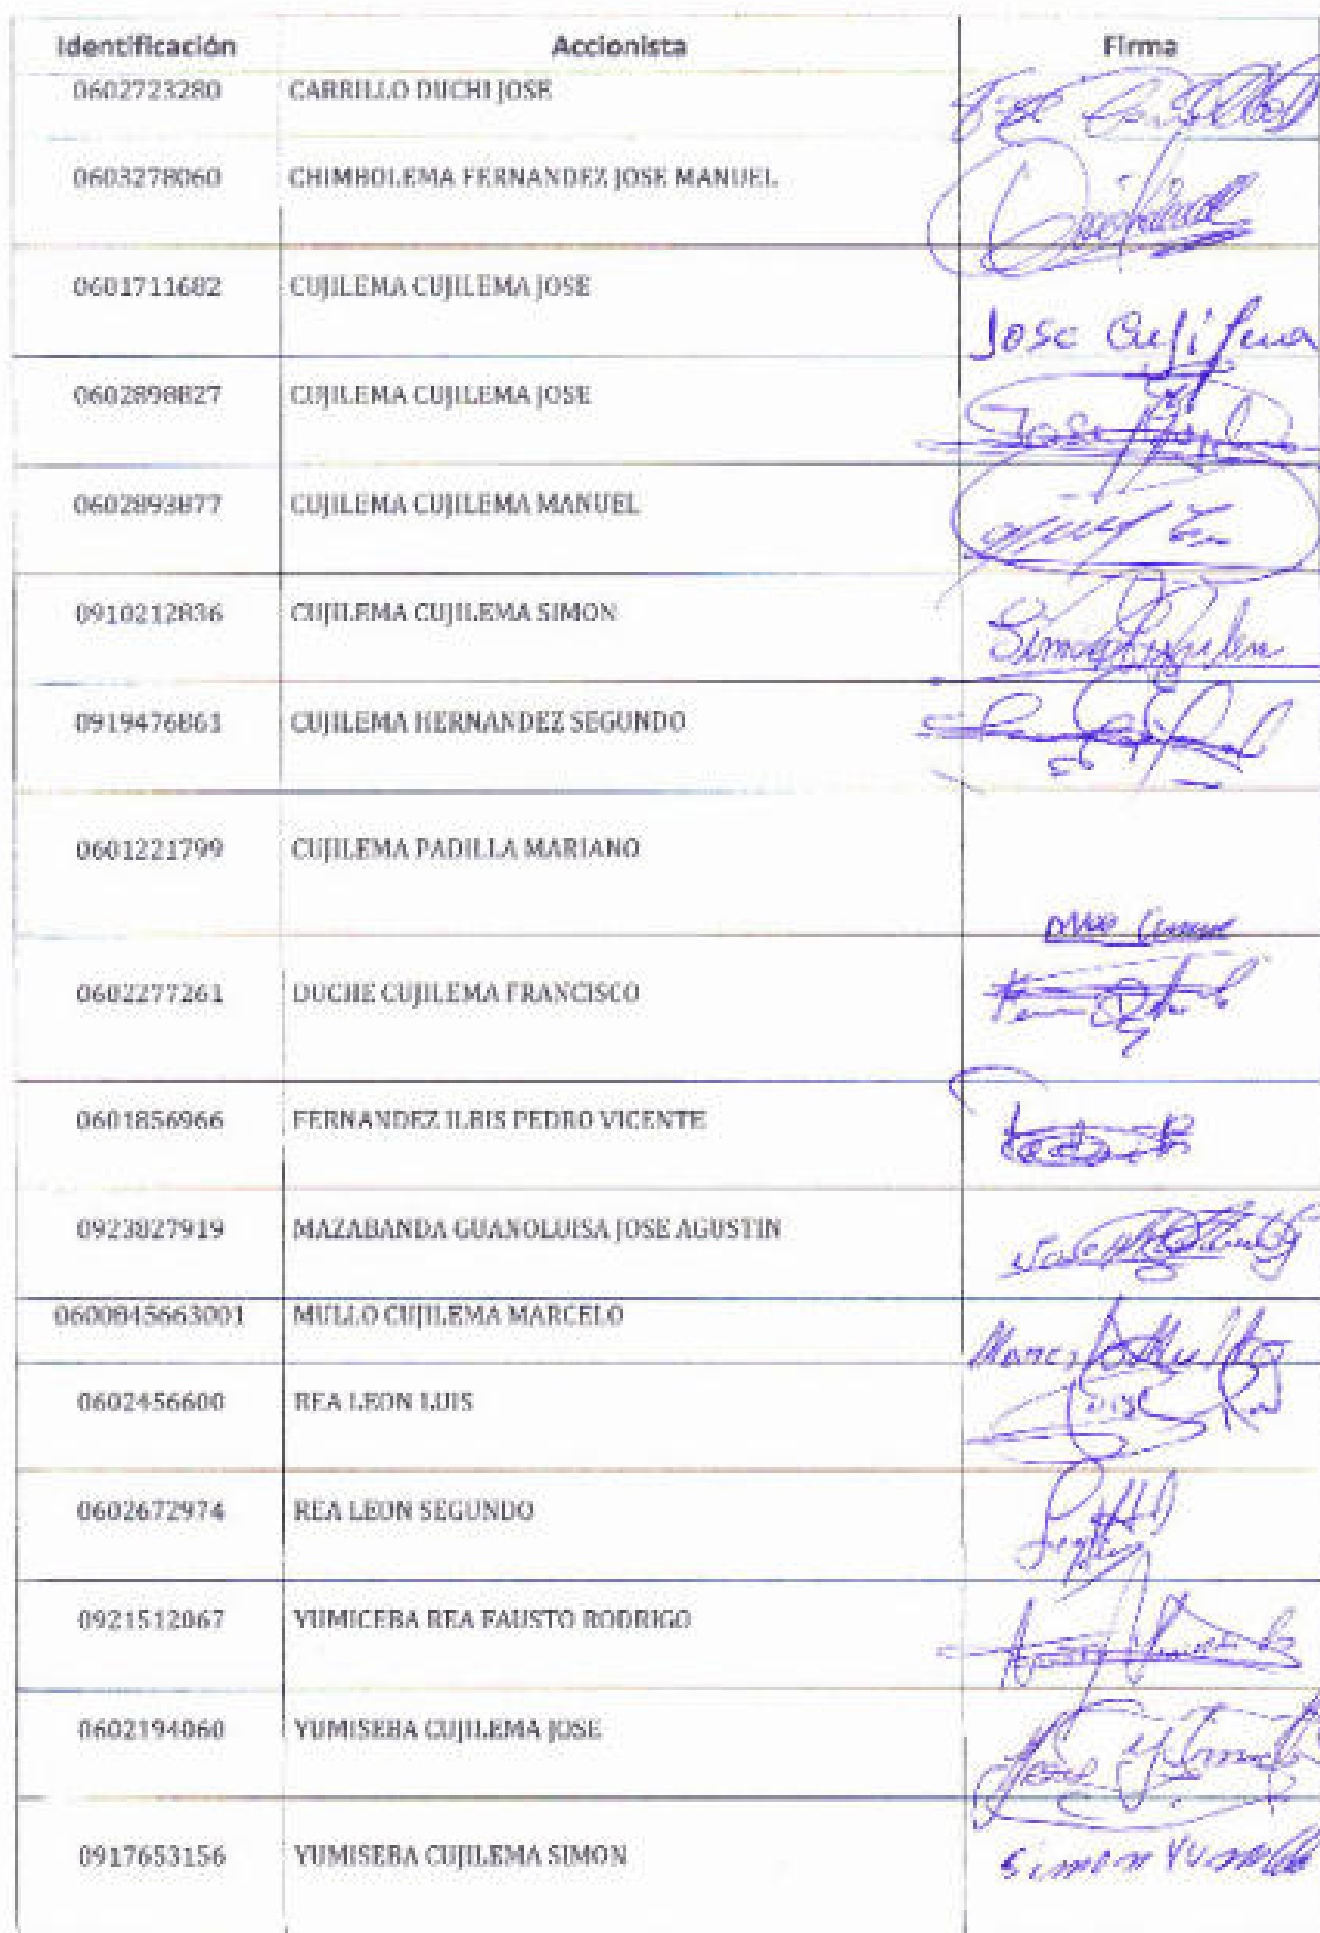 Identificación Accionista Firma
0602723280 CARRILLO DUCHI JOSE
0603278060 CHIMBOLEMA FERNANDEZ JOSE MANUEL
0601711682 CUJILEMA CUJILEMA JOSE Jose Cujilema
0602898827 CUJILEMA CUJILEMA JOSE Jose
0602893877 CUJILEMA CUJILEMA MANUEL
0910212836 CUJILEMA CUJILEMA SIMON Simon
0919476861 CUJILEMA HERNANDEZ SEGUNDO
0601221799 CUJILEMA PADILLA MARIANO
0602277261 DUCHE CUJILEMA FRANCISCO
0601856966 FERNANDEZ ILBIS PEDRO VICENTE
0923827919 MAZABANDA GUANOLUISA JOSE AGUSTIN
0600845663001 MULLO CUJILEMA MARCELO
0602456600 REA LEON LUIS
0602672974 REA LEON SEGUNDO
0921512067 YUMICEBA REA FAUSTO RODRIGO
0602194060 YUMISEBA CUJILEMA JOSE
0917653156 YUMISEBA CUJILEMA SIMON Simon